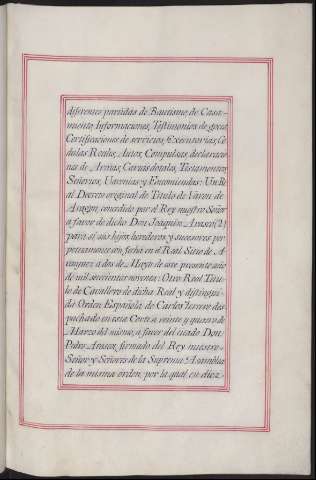 diferentes partidas de Bautismo, de Casa-
miento, Informaciones, Testimonios de goces
Certificaciones de servicios, Executorias, Ce
dulas Reales, Autos, Compulsas, declaracio
nes de Armas, Cartas dotales, Testamentos
Señorios, Varonias y Encomiendas: Un Re
al Decreto original de Titulo de Varon de
Aragon, concedido por el Rey nuestro Señor
a favor de dicho Don Joaquin
para si, sus hijos, herederos y sucesores per
petuamente con fecha en el Real Sitio de A
ranjuez a dos de Mayo de este presente año
de mil setecientos noventa: Otro Real Titu
lo de Cavallero de dicha Real y distingui
da Orden Española de Carlos tercero des
pachado en esta Corte a veinte y quatro de
Marzo del mismo, a favor del citado Don
Pedro firmado del Rey nuestro
Señor y Señores de la Suprema Asamblea
de la misma orden, por la qual, en diez